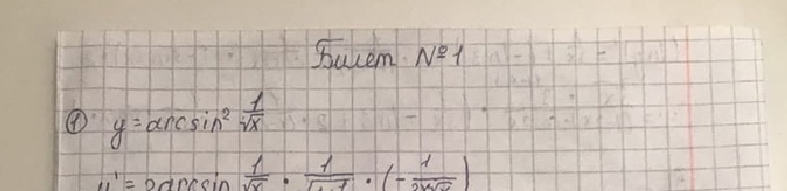 Билет №1
① y = arcsin² 1/√x
y' = 2arcsin 1/√x · 1/√ · (- 1/